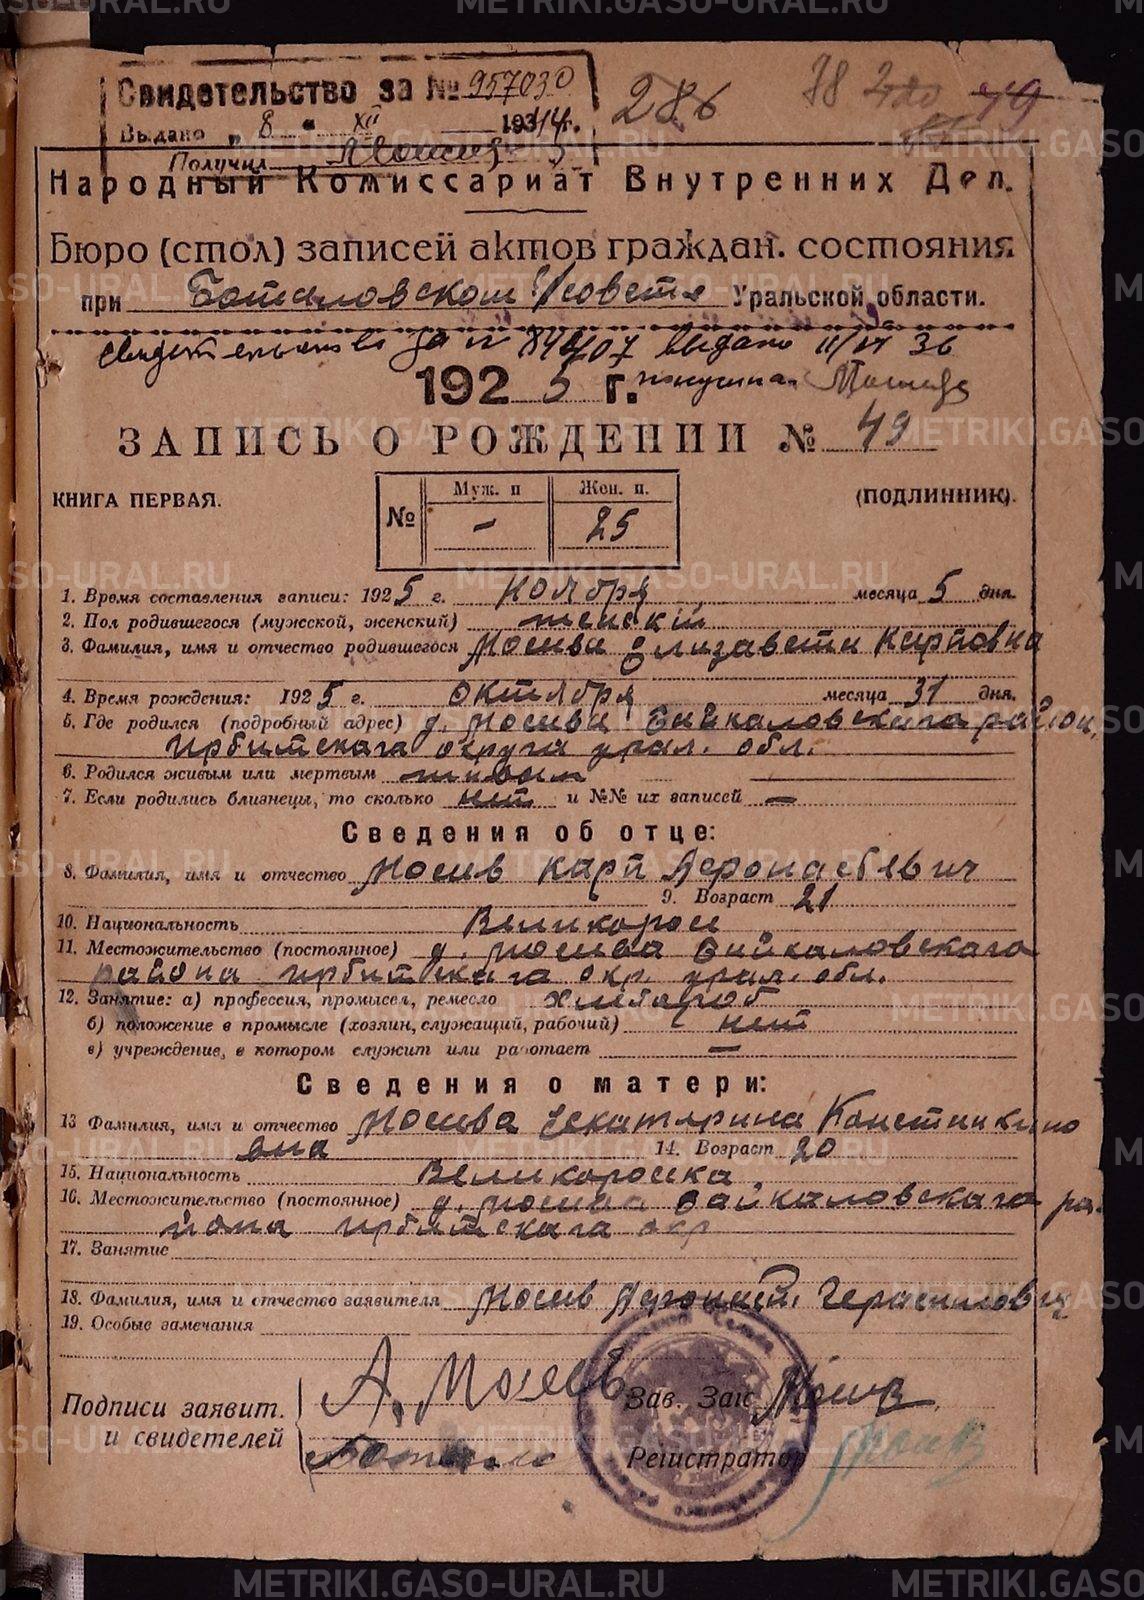 Свидетельство за № 957030
Выдано „ 8 " XII 1944г.
Получил
286
Народный Комиссариат Внутренних Дел.
Бюро (стол) записей актов граждан. состояния
при Боталовском с/совете Уральской области.
свидетельство за № выдано 11/VI 36
1925 г.
ЗАПИСЬ О РОЖДЕНИИ № 49
КНИГА ПЕРВАЯ.
(ПОДЛИННИК).
№ Муж. п – Жен. п. 25
1. Время составления записи: 1925 г. Ноября месяца 5 дня.
2. Пол родившегося (мужской, женский) женский
3. Фамилия, имя и отчество родившегося Мосева Елизавета Карповна
4. Время рождения: 1925 г. октября месяца 31 дня.
5. Где родился (подробный адрес) д. Мосева Байкаловскага район.
Ирбитскага округа урал. обл.
6. Родился живым или мертвым живым
7. Если родились близнецы, то сколько нет и №№ их записей —
Сведения об отце:
8. Фамилия, имя и отчество Мосев Карп
9. Возраст 21
10. Национальность Великорос
11. Местожительство (постоянное) д. Мосева Байкаловскага
района Ирбитскага окр. урал. обл.
12. Занятие: а) профессия, промысел, ремесло хлебороб
б) положение в промысле (хозяин, служащий, рабочий) нет
в) учреждение, в котором служит или работает —
Сведения о матери:
13 Фамилия, имя и отчество Мосева Екатярина
вна 14. Возраст 20
15. Национальность Великороска
16. Местожительство (постоянное) д. Мосева Байкаловскага ра-
йона Ирбитскага окр
17. Занятие
18. Фамилия, имя и отчество заявителя Мосев Герасимович
19. Особые замечания
Подписи заявит.
и свидетелей
А. Мосев
Зав. Заг
Регистратор
METRIKI.GASO-URAL.RU